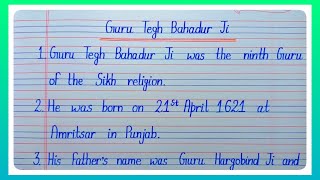 Guru Tegh Bahadur Ji
1. Guru Tegh Bahadur Ji was the ninth Guru
of the Sikh religion.
2. He was born on 21st April 1621 at
Amritsar in Punjab.
3. His father's name was Guru Hargobind Ji and